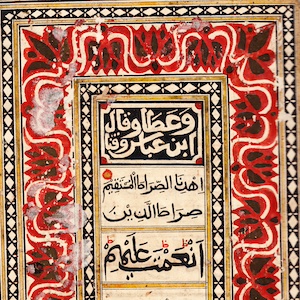 وعطا وقال
ابن عباس وقا
اهدنا الصراط المستقيم
صراط الذين
انعمت عليهم